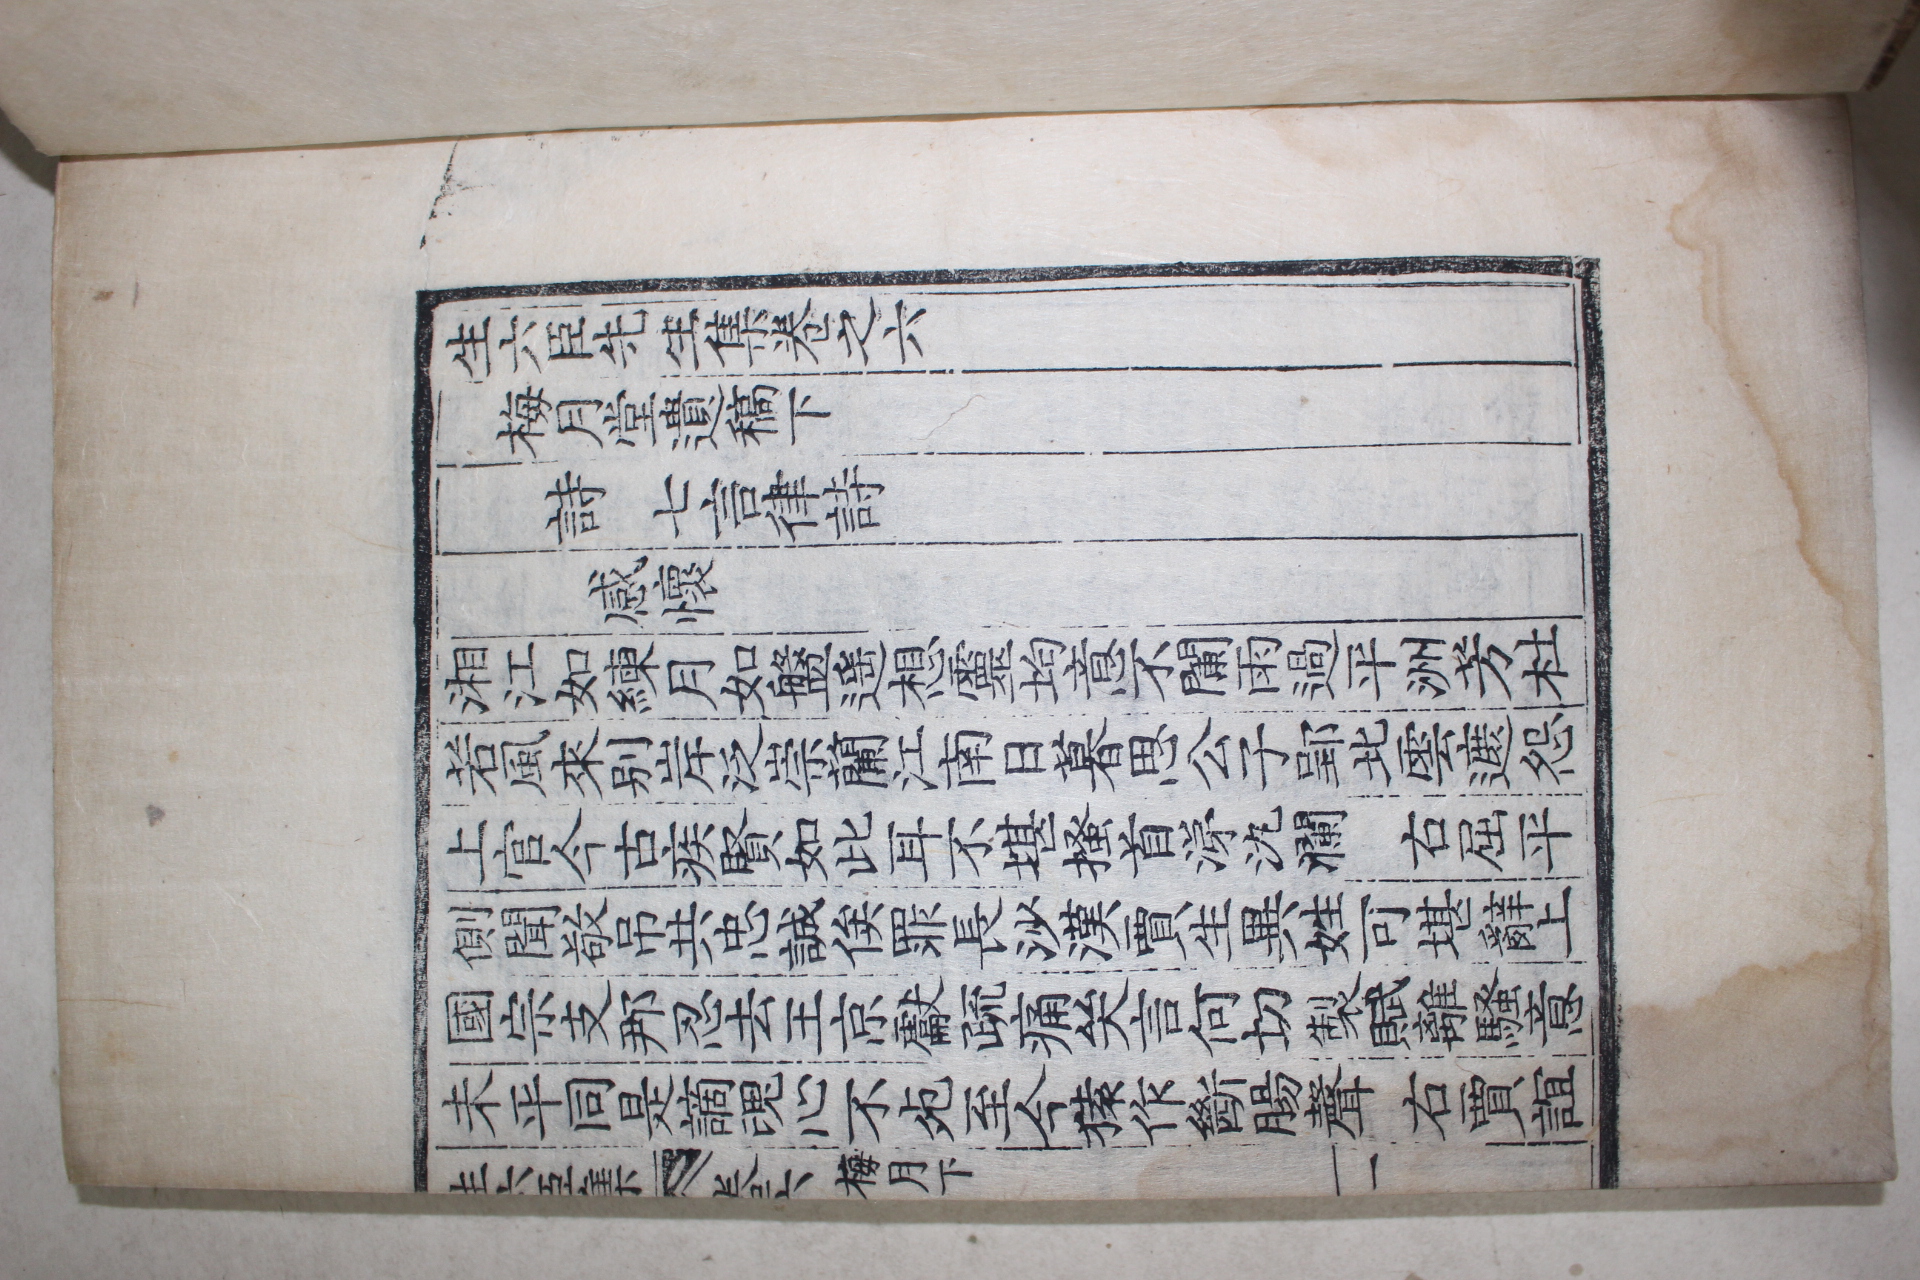 生六臣先生集卷之六
梅月堂遺稿下
詩 七言律詩
感懷
湘江如練月如盤遙想靈均意不闌雨過平洲芳杜
若風來別岸泛崇蘭江南日暮思公子郢北雲迷怨
上官今古疾賢如此耳不堪搔首涕汍瀾 右屈平
側聞敬吊共忠誠俟罪長沙漢賈生異姓可堪辭上
國宗支那忍去王京殺竊疏痛哭言何切製賦離騷意
未平同是謫愢心不死至今猿作斷腸聲 右賈誼
生六臣集 卷六 梅月下 一